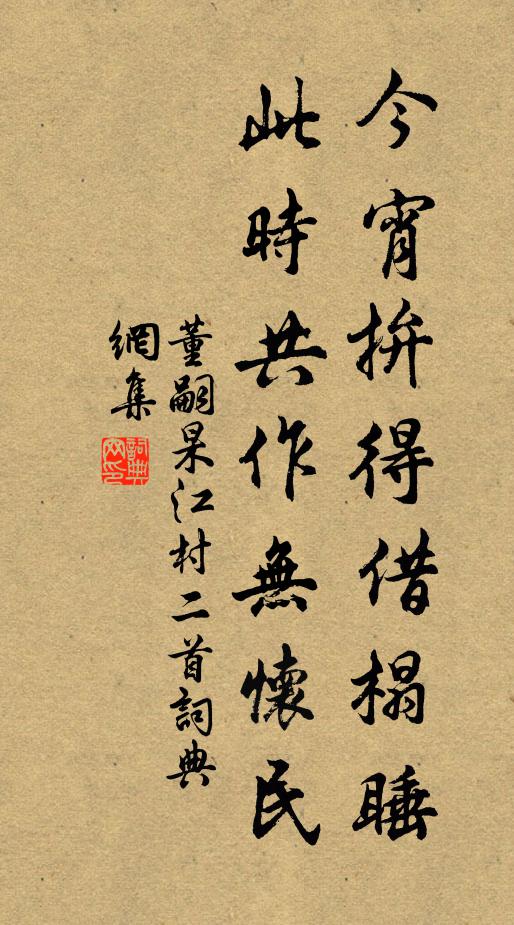 今宵拚得借榻睡
此時共作無懷民
董嗣杲江村二首詞典
網集
詞典網印